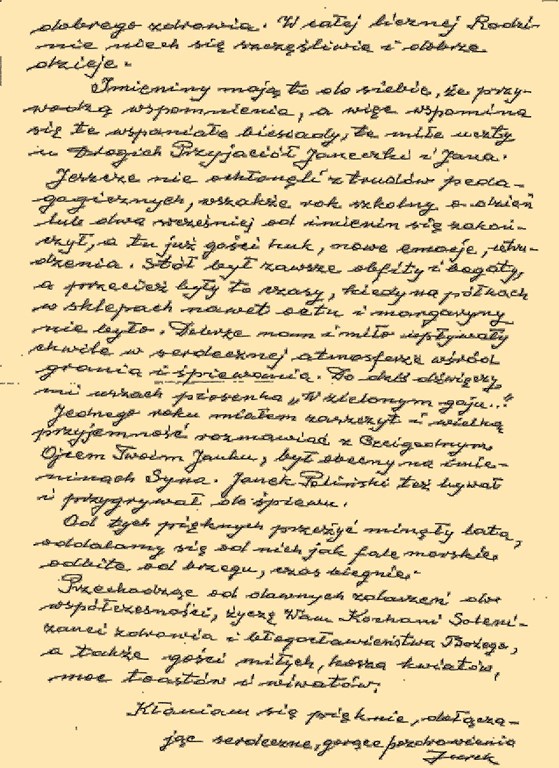 dobrego zdrowia. W całej licznej Rodzi-
nie niech się szczęśliwie i dobrze
dzieje.
Imieniny mają to do siebie, że przy-
wodzą wspomnienia, a więc wspomina
się te wspaniałe biesiady, te miłe uczty
u Drogich Przyjaciół Janeczki i Jana.
Jeszcze nie ochłonęli z trudów peda-
gogicznych, wszakże rok szkolny o dzień
lub dwa wcześniej od imienin się zakoń-
czył, a tu już gości huk, nowe emocje, utru-
dzenia. Stół był zawsze obfity i bogaty,
a przecież były to czasy, kiedy na półkach
w sklepach nawet octu i margaryny
nie było. Dobrze nam i miło upływały
chwile w serdecznej atmosferze wśród
grania i śpiewania. Do dziś dźwięczy
mi w uszach piosenka „W zielonym gaju..."
Jednego roku miałem zaszczyt i wielką
przyjemność rozmawiać z Czcigodnym
Ojcem Twoim Janku, był obecny na imie-
ninach Syna. Janek Poliński też bywał
i przygrywał do śpiewu.
Od tych pięknych przeżyć minęły lata,
oddalamy się od nich jak fale morskie
odbite od brzegu, czas biegnie.
Przechodząc od dawnych zdarzeń do
współczesności, życzę Wam Kochani Soleni-
zanci zdrowia i błogosławieństwa Bożego,
a także gości miłych, kosza kwiatów,
moc toastów i wiwatów.
Kłaniam się pięknie, dołącza-
jąc serdeczne, gorące pozdrowienia
Jurek